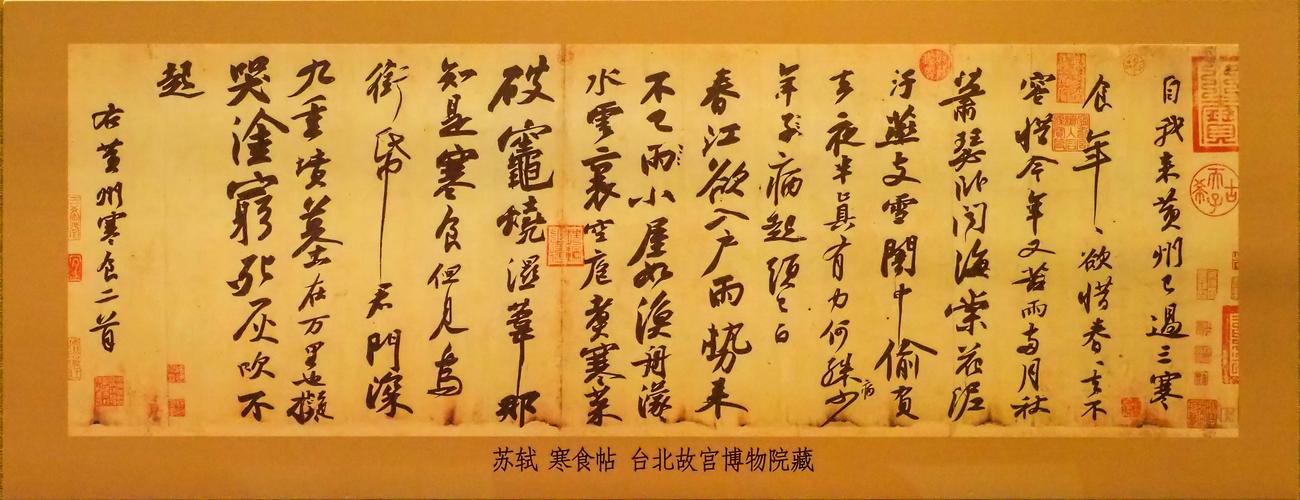 自我来黄州已過三寒
食年〻欲惜春〻去不
容惜今年又苦雨兩月秋
蕭瑟卧聞海棠花泥
汙燕支雪闇中偷負
去夜半真有力何殊少
病
年子病起頭已白
春江欲入户雨勢来
不已雨小屋如漁舟濛〻
水雲裏空庖煮寒菜
破竈燒濕葦那
知是寒食但見烏
銜帋君門深
九重墳墓在万里也擬
哭塗窮死灰吹不
起
右黄州寒食二首
古希天子
苏轼 寒食帖 台北故宫博物院藏